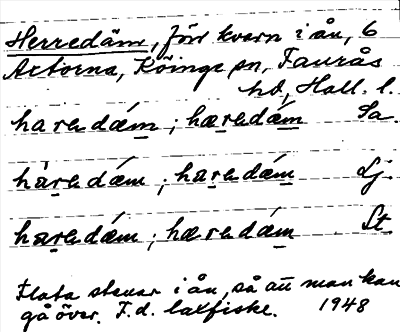 Herredäm, förr kvarn i ån, 6
Artorna, Köinge sn, Faurås
hd, Hall. l.
haredǽm; hæredǽm Sa.
hàredæm; haredǽm Lj.
haredǽm; hæredǽm St.
Flata stenar i ån, så att man kan
gå över. F.d. laxfiske. 1948